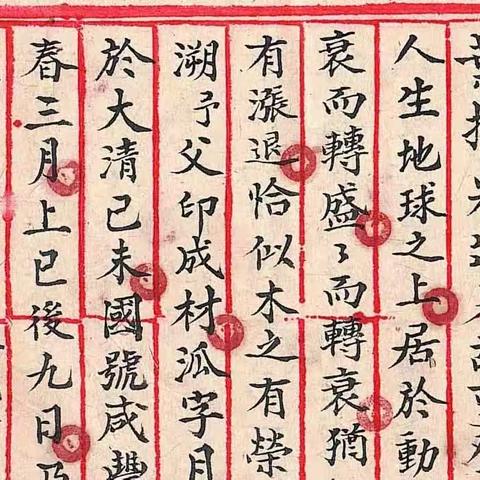 人生地球之上居於動
衰而轉盛〻而轉衰猶
有漲退恰似木之有榮
溯予父印成材泒字月
於大清己未國號咸豐
春三月上巳後九日乃